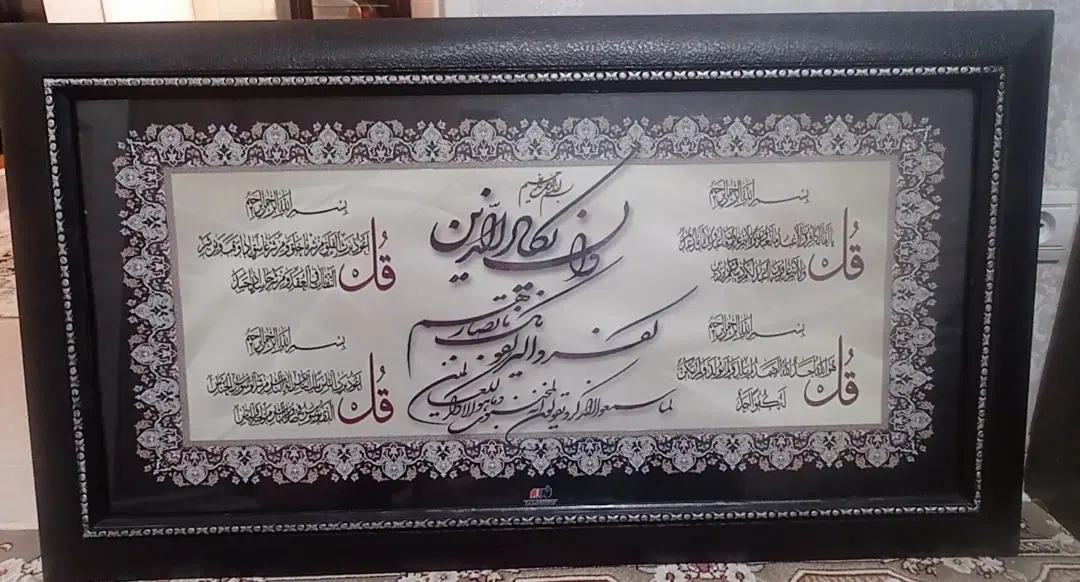 بسم الله الرحمن الرحیم
قل یا ایها الکافرون لا اعبد ما تعبدون ولا انتم عابدون ما اعبد ولا انا عابد ما عبدتم
ولا انتم عابدون ما اعبد لکم دینکم ولی دین
بسم الله الرحمن الرحیم
قل هو الله احد الله الصمد لم یلد ولم یولد ولم یکن
له کفوا احد
بسم الله الرحمن الرحیم
وان یکاد الذین
کفروا لیزلقونک بابصارهم
لما سمعوا الذکر ویقولون انه لمجنون وما هو الا ذکر للعالمین
بسم الله الرحمن الرحیم
قل اعوذ برب الفلق من شر ما خلق ومن شر غاسق اذا وقب ومن شر
النفاثات فی العقد ومن شر حاسد اذا حسد
بسم الله الرحمن الرحیم
قل اعوذ برب الناس ملک الناس اله الناس من شر الوسواس الخناس
الذی یوسوس فی صدور الناس من الجنة والناس